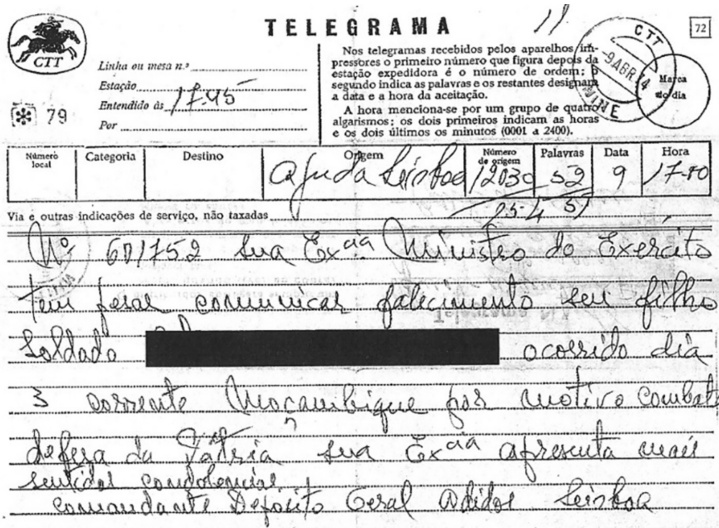 TELEGRAMA
72
CTT
Linha ou mesa n.º
Estação
Entendido às 17.45
Por
79
Nos telegramas recebidos pelos aparelhos im-
pressores o primeiro número que figura depois da
estação expedidora é o número de ordem; o
segundo indica as palavras e os restantes designam
a data e a hora da aceitação.
A hora menciona-se por um grupo de quatro
algarismos; os dois primeiros indicam as horas
e os dois últimos os minutos (0001 a 2400).
CTT
Marca do dia
Número local Categoria Destino Origem Número de origem Palavras Data Hora
Ajuda Lisboa 12030 52 9
Via e outras indicações de serviço, não taxadas
Nº 601752 sua Exª Ministro do Exercito
tem pesar comunicar falecimento seu filho
Soldado ocorrido dia
3 corrente Moçambique por motivo combate
defesa da Pátria sua Exª apresenta mais
sentidas condolencias
Comandante Deposito Geral Adidos Lisboa